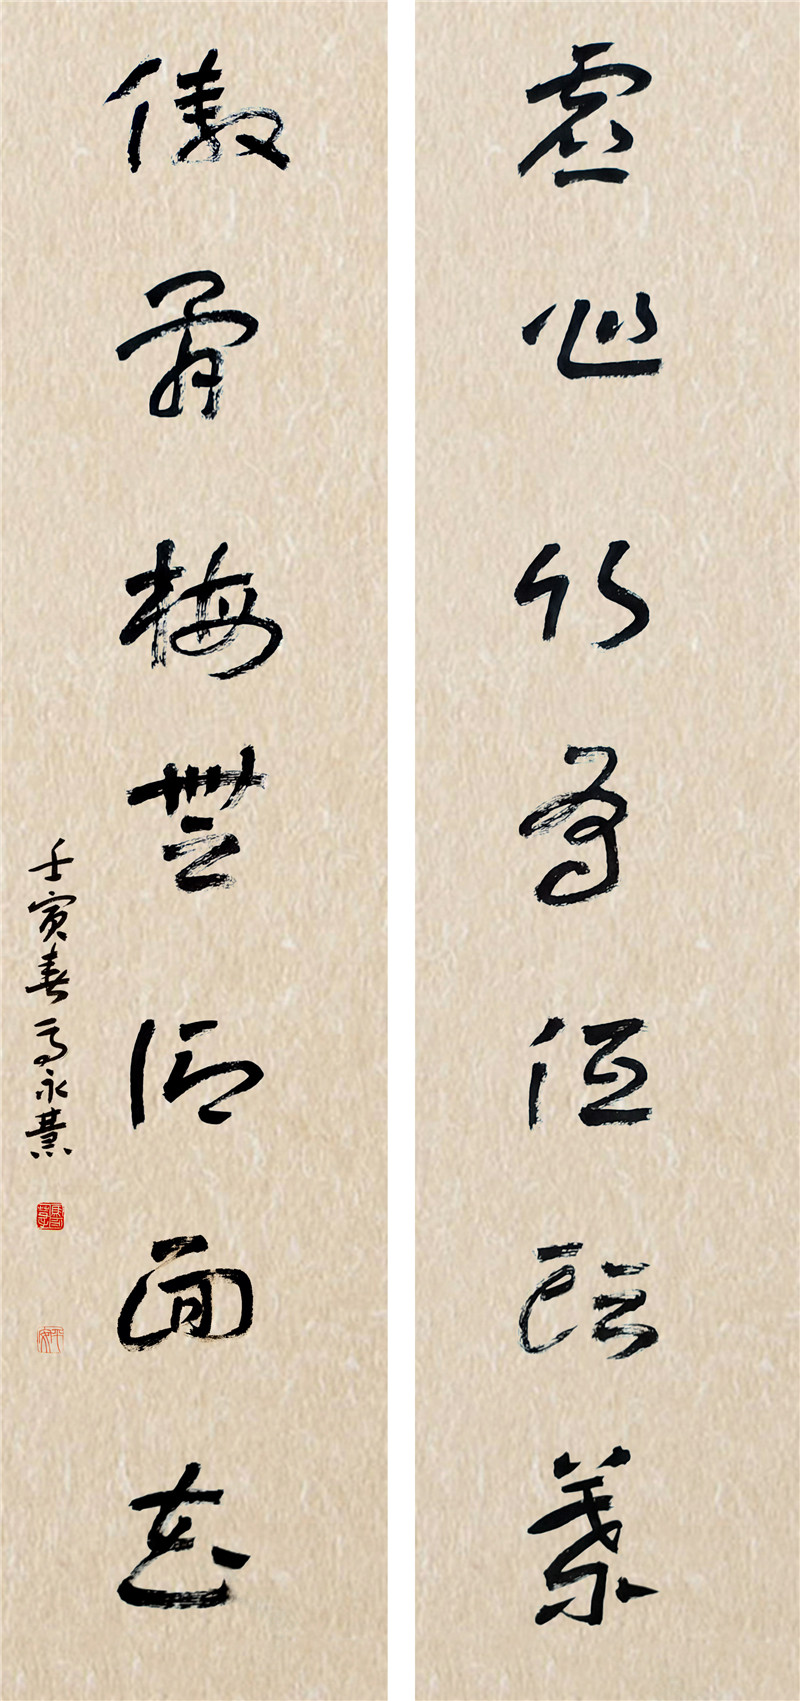 虚心竹有低头葉
傲骨梅無仰面花
壬寅春高永慕